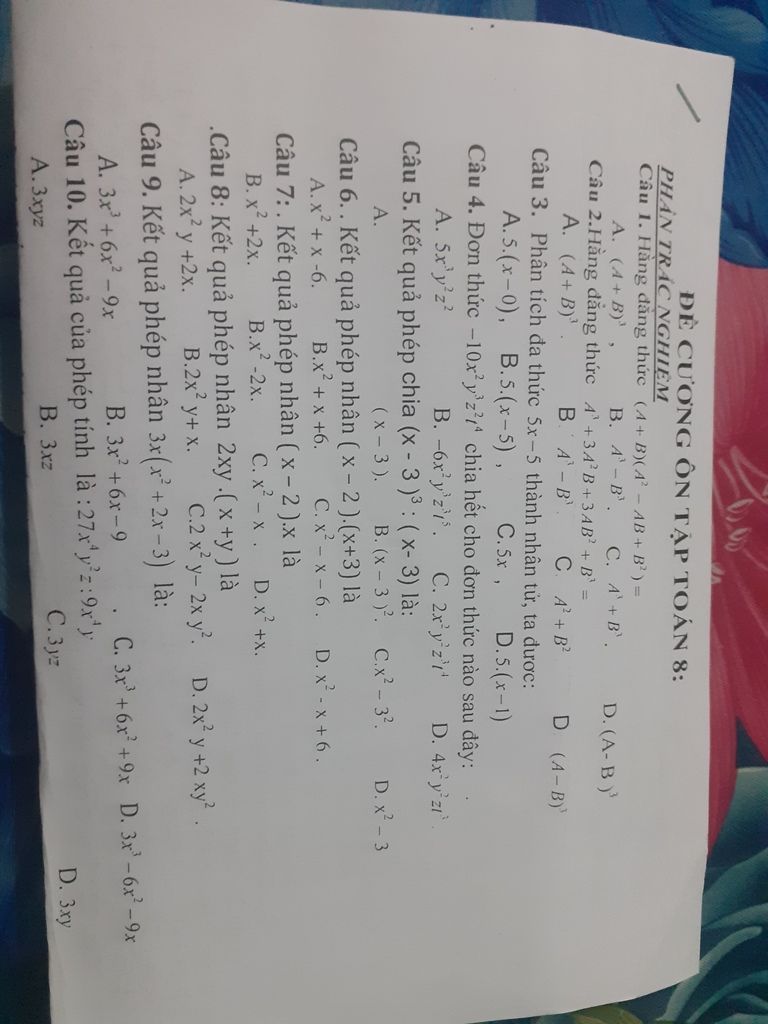 ĐỀ CƯƠNG ÔN TẬP TOÁN 8:
PHẦN TRẮC NGHIỆM
Câu 1. Hằng đẳng thức (A + B)(A² − AB + B²) =
A. (A + B)³ , B. A³ − B³ . C. A³ + B³ . D. (A- B )³
Câu 2.Hằng đẳng thức A³ + 3A²B + 3AB² + B³ =
A. (A + B)³ . B. A³ − B³ . C. A² + B² D (A − B)³
Câu 3. Phân tích đa thức 5x − 5 thành nhân tử, ta được:
A. 5.(x − 0) , B. 5.(x − 5) , C. 5x , D. 5.(x − 1)
Câu 4. Đơn thức −10x²y³z²t⁴ chia hết cho đơn thức nào sau đây:
A. 5x³y²z² B. −6x²y³z³t⁵ . C. 2x²y²z³t⁴ D. 4x²y²zt³ .
Câu 5. Kết quả phép chia (x - 3 )³ : ( x- 3) là:
A. ( x − 3 ). B. (x − 3 )². C.x² − 3². D. x² − 3
Câu 6. . Kết quả phép nhân ( x − 2 ).(x+3) là
A. x² + x -6. B.x² + x +6. C. x² − x − 6 . D. x² - x + 6 .
Câu 7: . Kết quả phép nhân ( x − 2 ).x là
B. x² +2x. B.x² -2x. C. x² − x . D. x² +x.
.Câu 8: Kết quả phép nhân 2xy .( x +y ) là
A. 2x² y +2x. B.2x² y+ x. C.2 x² y− 2x y². D. 2x² y +2 xy² .
Câu 9. Kết quả phép nhân 3x(x² + 2x − 3) là:
A. 3x³ + 6x² − 9x B. 3x² + 6x − 9 . C. 3x³ + 6x² + 9x D. 3x³ − 6x² − 9x
Câu 10. Kết quả của phép tính là : 27x⁴y²z : 9x⁴y
A. 3xyz B. 3xz C. 3yz D. 3xy